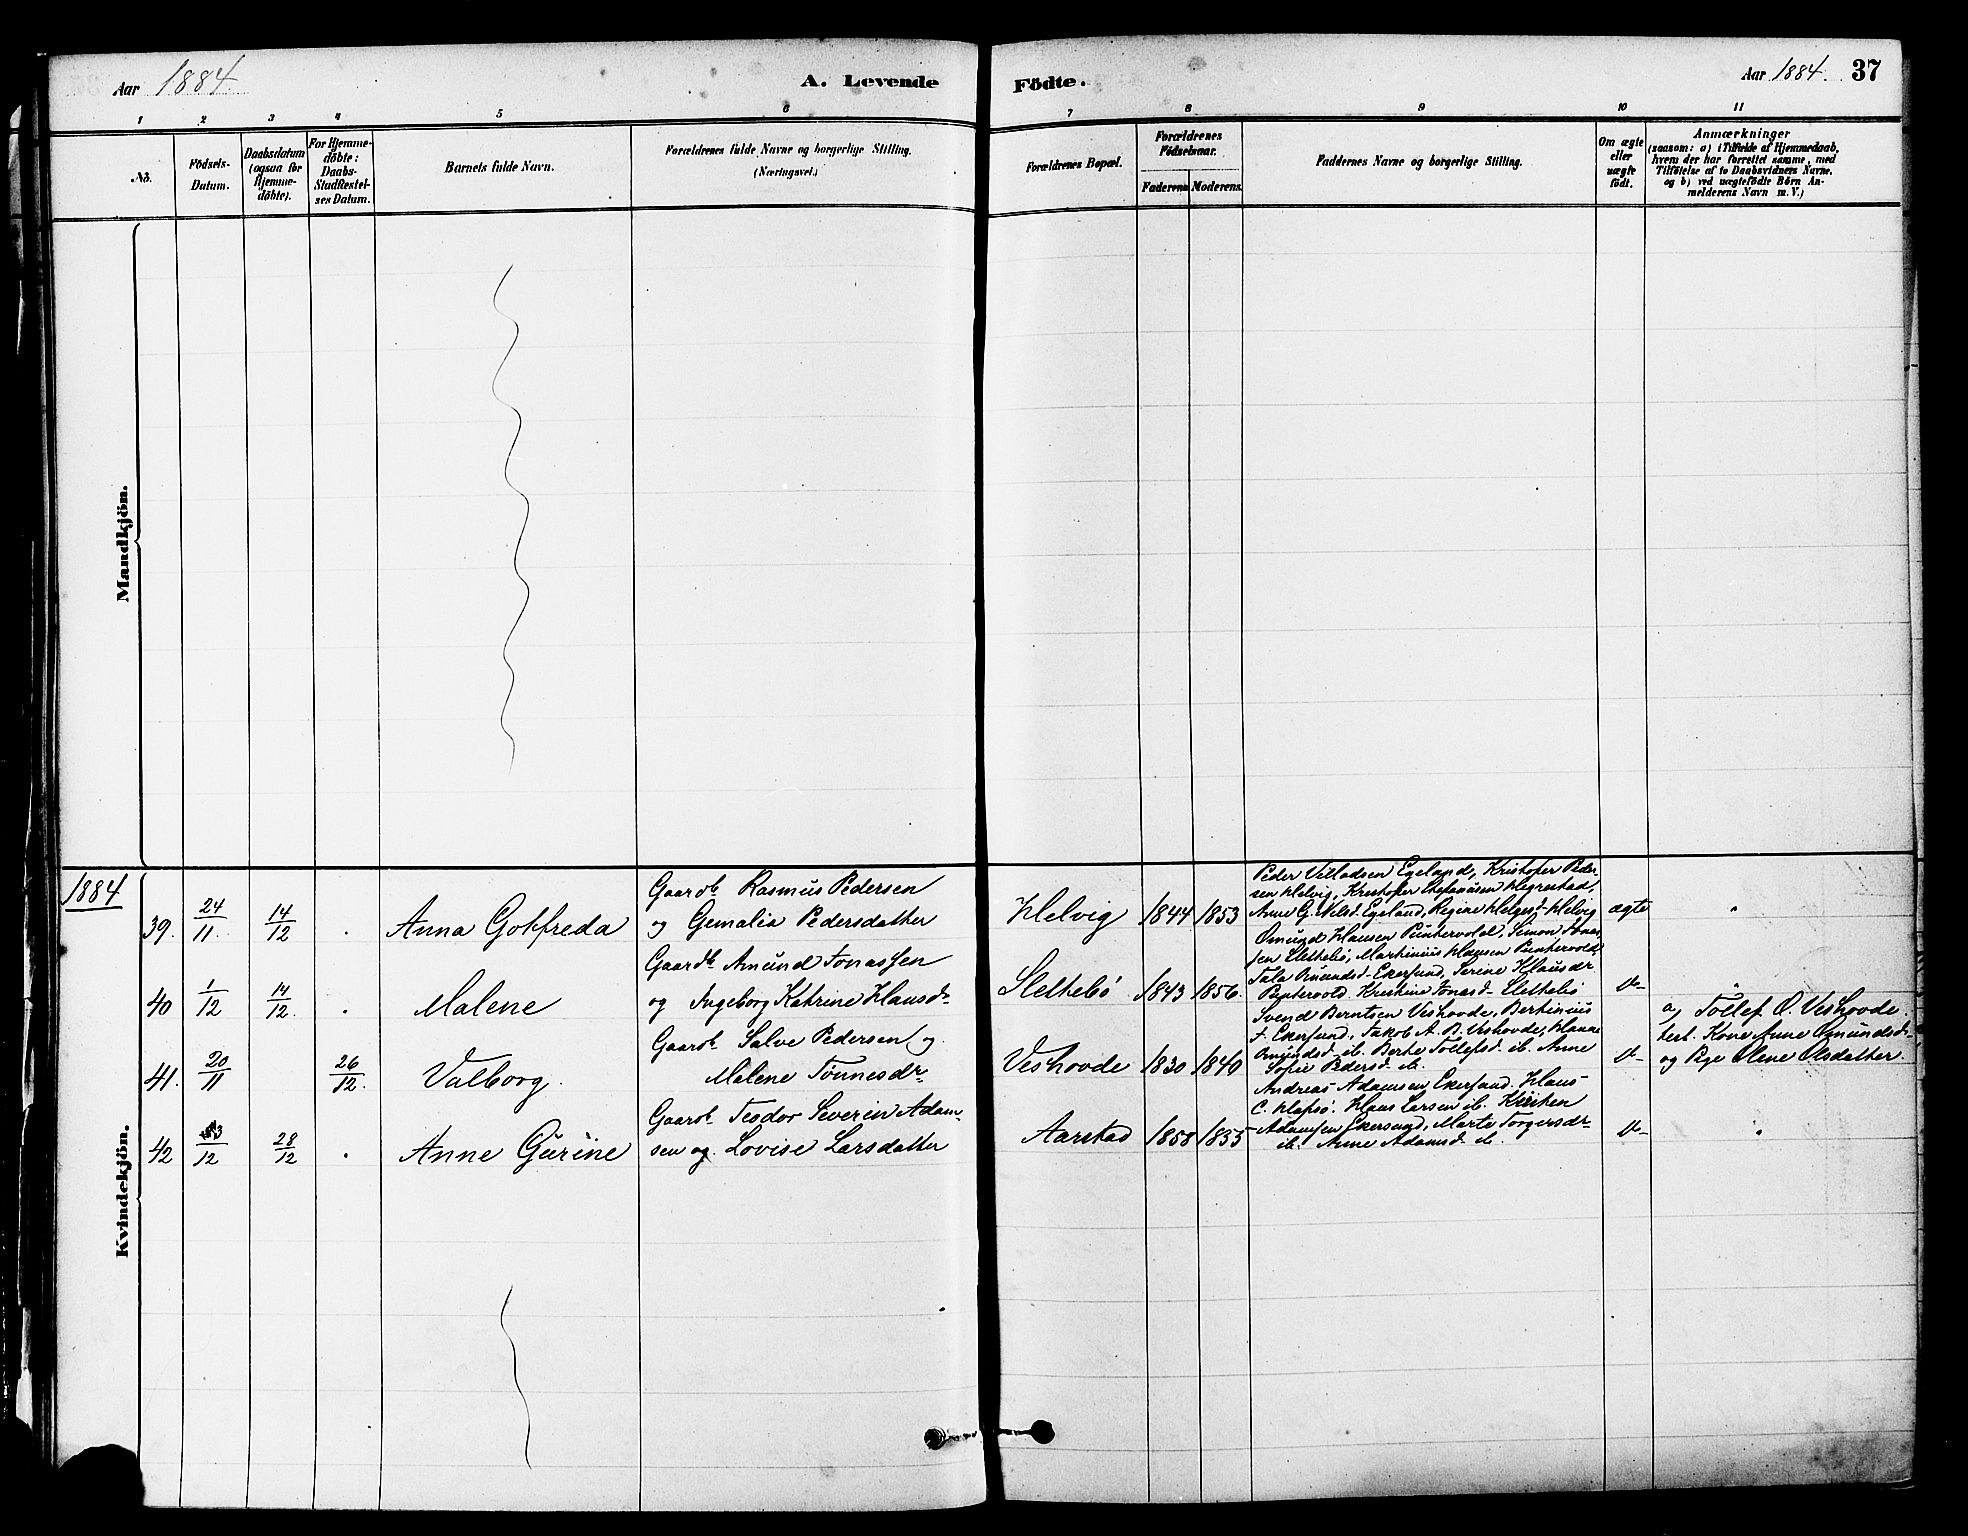 Aar 1884.
A. Levende
1 2 3 4 5 6
No.
Födsels-
Datum.
Daabsdatum
(ogsaa for
Hjemme-
döbte).
For Hjemme-
döbte:
Daabs-
Stadfæstel-
ses Datum.
Barnets fulde Navn.
Forældrenes fulde Navne og borgerlige Stilling.
(Næringsvei.)
Födte.
Aar 1884. 37
7 8 9 10 11
Forældrenes Bopæl.
Forældrenes
Födselsaar.
Faderens Moderens.
Faddernes Navne og borgerlige Stilling.
Om ægte
eller
uægte
födt.
Anmærkninger
(saasom: a) i Tilfælde af Hjemmedaab,
hvem der har forrettet samme, med
Tilföielse af to Daabsvidners Navne,
og b) ved uægtefödte Börn An-
melderens Navn m. V.)
Mandkjön.
Kvindekjön.
1884
39. 24/11. 14/12 . Anna Gotfreda
Gaardb. Rasmus Pedersen
og Gemalia Pedersdatter
Helvig 1844 1853
Peder Villadsen Egeland, Kristofer Peder-
sen Helvig, Kristofer Stefanusen Hegrestad,
Anne G. Nilsd. Egeland, Regine Helgesd. Helvig
ægte "
40 1/12 14/12. . Malene
Gaardb. Amund Jonassen
og Ingeborg Katrine Klausdr
Slettebö 1843 1856.
Omund Hansen Puntervold, Simon Jonas-
sen Slettebö, Martinius Hansen Puntervold
Tala Omundsd. Ekersund, Serine Klausdr
Puntervold. Kristine Jonasd. Slettebö
do "
41. 20/11 26/12. Valborg.
Gaardb. Salve Pedersen og
Malene Tönnesdr
Veshovde 1830 1840
Svend Berntsen Veshovde, Bertinius
J. Ekersund, Jakob A. B. Veshovde, Hanne
Omundsd. ib. Berte Tollefsd. ib. Anne
Sofie Pedersd. ib.
do
a) Tollef O. Veshovde.
test. Kone Anne Omundsdr
og Pige Elene Olsdatter.
42 3/12 28/12 . Anne Gurine
Gaardb. Teodor Severin Adam-
sen og Lovise Larsdatter
Aarstad 1858 1855
Andreas Adamsen Ekersund. Hans
C. Hafsö. Hans Larsen ib. Kirsten
Adamsen Ekersund, Marte Torgersdr
ib. Anne Adamsd. ib.
do "